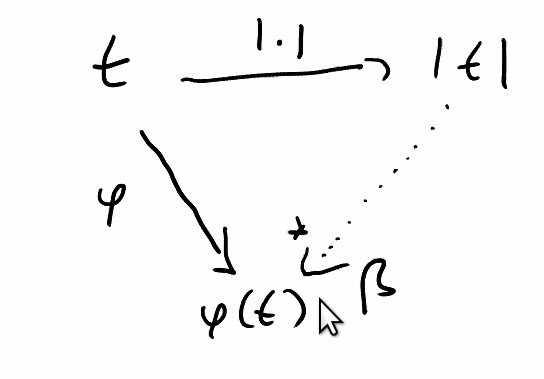 |·|
t → |t|
φ
*
φ(t) β